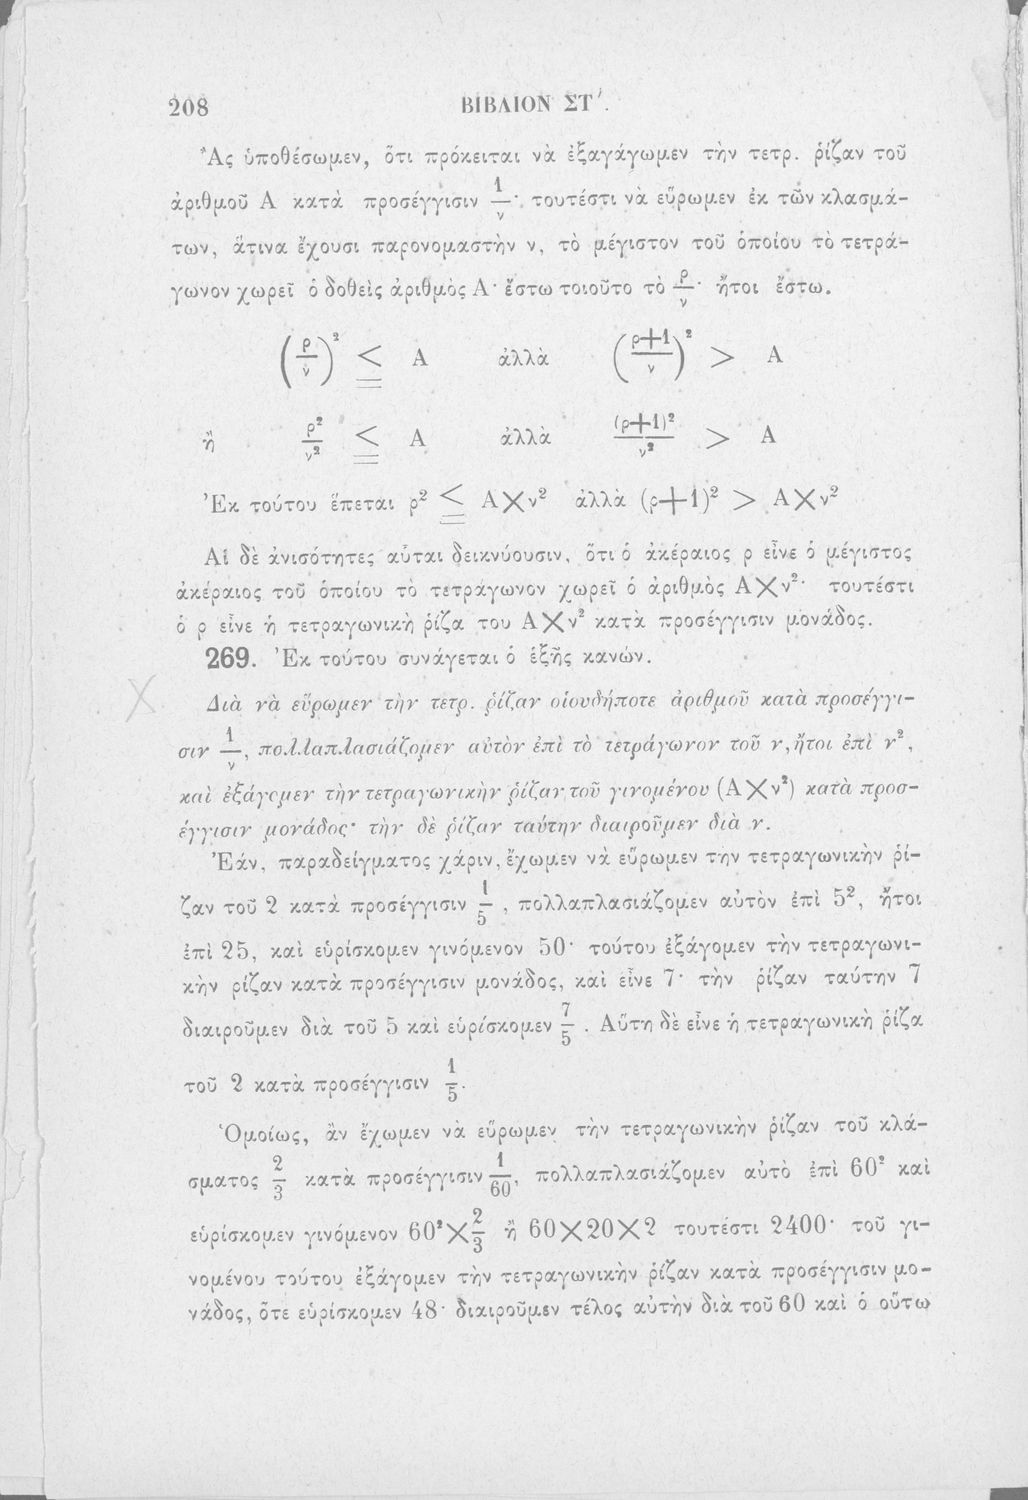 208 ΒΙΒΛΙΟΝ ΣΤ΄.
Ἂς ὑποθέσωμεν, ὅτι πρόκειται νὰ ἐξαγάγωμεν τὴν τετρ. ῥίζαν τοῦ
ἀριθμοῦ Α κατὰ προσέγγισιν 1/ν· τουτέστι νὰ εὕρωμεν ἐκ τῶν κλασμά-
των, ἅτινα ἔχουσι παρονομαστὴν ν, τὸ μέγιστον τοῦ ὁποίου τὸ τετρά-
γωνον χωρεῖ ὁ δοθεὶς ἀριθμὸς Α· ἔστω τοιοῦτο τὸ ρ/ν· ἤτοι ἔστω.
(ρ/ν)² ≦ Α ἀλλὰ ((ρ+1)/ν)² > Α
ἢ ρ²/ν² ≦ Α ἀλλὰ (ρ+1)²/ν² > Α
Ἐκ τούτου ἕπεται ρ² ≦ Α×ν² ἀλλὰ (ρ+1)² > Α×ν²
Αἱ δὲ ἀνισότητες αὗται δεικνύουσιν, ὅτι ὁ ἀκέραιος ρ εἶνε ὁ μέγιστος
ἀκέραιος τοῦ ὁποίου τὸ τετράγωνον χωρεῖ ὁ ἀριθμὸς Α×ν²· τουτέστι
ὁ ρ εἶνε ἡ τετραγωνικὴ ῥίζα του Α×ν² κατὰ προσέγγισιν μονάδος.
269. Ἐκ τούτου συνάγεται ὁ ἑξῆς κανών.
Διὰ νὰ εὕρωμεν τὴν τετρ. ῥίζαν οἱουδήποτε ἀριθμοῦ κατὰ προσέγγι-
σιν 1/ν, πολλαπλασιάζομεν αὐτὸν ἐπὶ τὸ τετράγωνον τοῦ ν, ἤτοι ἐπὶ ν²,
καὶ ἐξάγομεν τὴν τετραγωνικὴν ῥίζαν τοῦ γινομένου (Α×ν²) κατὰ προσ-
έγγισιν μονάδος· τὴν δὲ ῥίζαν ταύτην διαιροῦμεν διὰ ν.
Ἐάν, παραδείγματος χάριν, ἔχωμεν νὰ εὕρωμεν την τετραγωνικὴν ῥί-
ζαν τοῦ 2 κατὰ προσέγγισιν 1/5, πολλαπλασιάζομεν αὐτὸν ἐπὶ 5², ἤτοι
ἐπὶ 25, καὶ εὑρίσκομεν γινόμενον 50· τούτου ἐξάγομεν τὴν τετραγωνι-
κὴν ρίζαν κατὰ προσέγγισιν μονάδος, καὶ εἶνε 7· τὴν ῥίζαν ταύτην 7
διαιροῦμεν διὰ τοῦ 5 καὶ εὑρίσκομεν 7/5. Αὕτη δὲ εἶνε ἡ τετραγωνικὴ ῥίζα
τοῦ 2 κατὰ προσέγγισιν 1/5.
Ὁμοίως, ἂν ἔχωμεν νὰ εὕρωμεν τὴν τετραγωνικὴν ῥίζαν τοῦ κλά-
σματος 2/3 κατὰ προσέγγισιν 1/60, πολλαπλασιάζομεν αὐτὸ ἐπὶ 60² καὶ
εὑρίσκομεν γινόμενον 60²×2/3 ἢ 60×20×2 τουτέστι 2400· τοῦ γι-
νομένου τούτου ἐξάγομεν τὴν τετραγωνικὴν ῥίζαν κατὰ προσέγγισιν μο-
νάδος, ὅτε εὑρίσκομεν 48· διαιροῦμεν τέλος αὐτὴν διὰ τοῦ 60 καὶ ὁ οὕτω